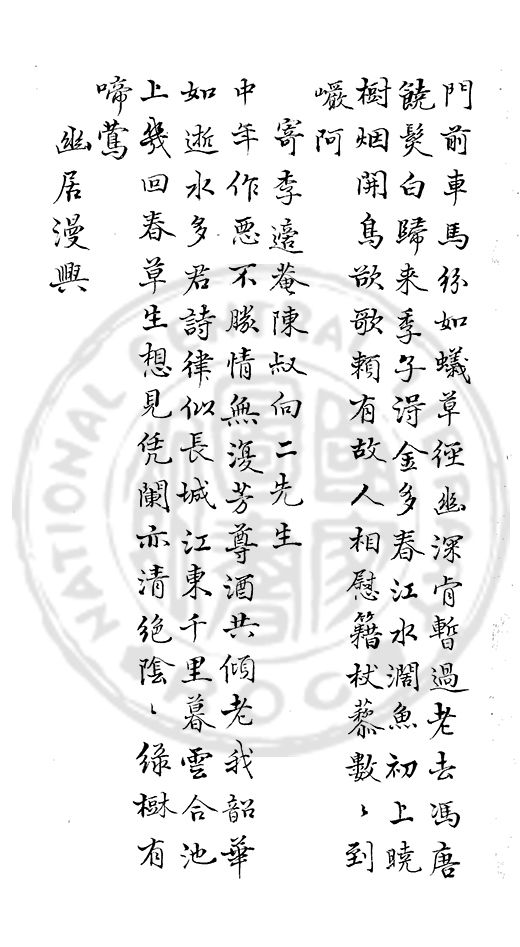 門前車馬紛如蟻草徑幽深肯暫過老去馮唐
饒髮白歸来季子得金多春江水濶魚初上曉
樹烟開鳥欲歌頼有故人相慰籍杖藜數〻到
巖阿
寄李邃菴陳叔向二先生
中年作惡不勝情無復芳尊酒共傾老我韶華
如逝水多君詩律似長城江東千里暮雲合池
上幾回春草生想見凭闌亦清絶陰〻緑樹有
啼鶯
幽居漫興
NATIONAL CENTRAL LIBRARY
R.O.C.